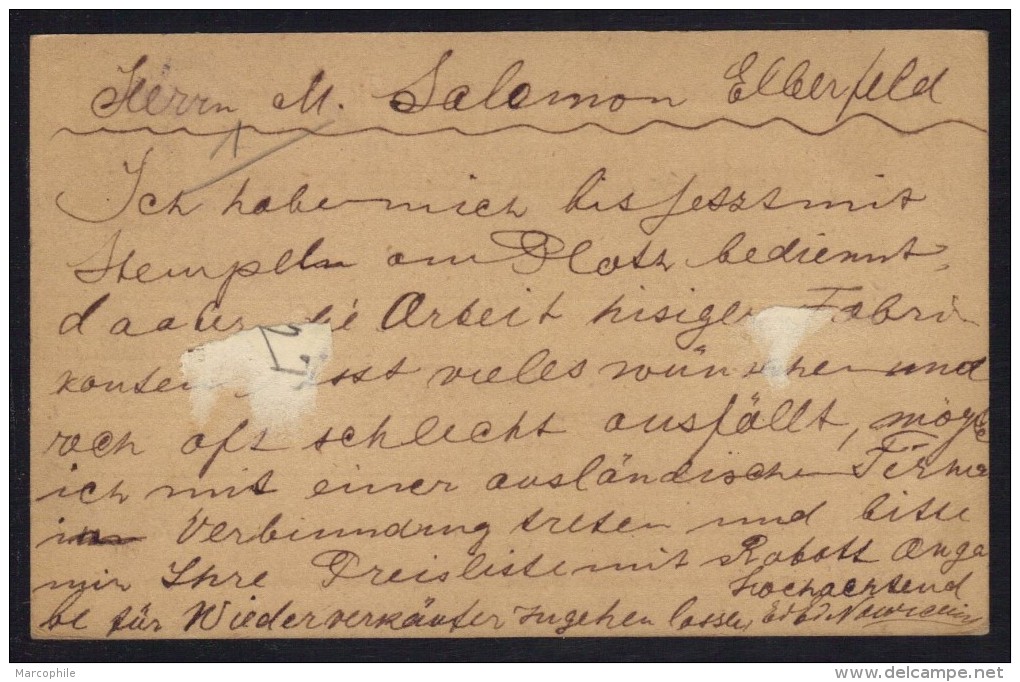 Herrn M. Salomon Elberfeld
Ich habe mich bis jeszt mit
Stempeln am Platz bediennt,
da aber die Arbeit hisiger Fabri
kanten lässt vieles wünschen und
roch oft schlecht ausfällt, möge
ich mit einer ausländischen Firma
in Verbinndung treten und bitte
mir Ihre Preisliste mit Rabatt Anga
be für Wiederverkäufer zugehen lassen,
Hochachtend
Marcophile
delcampe.net